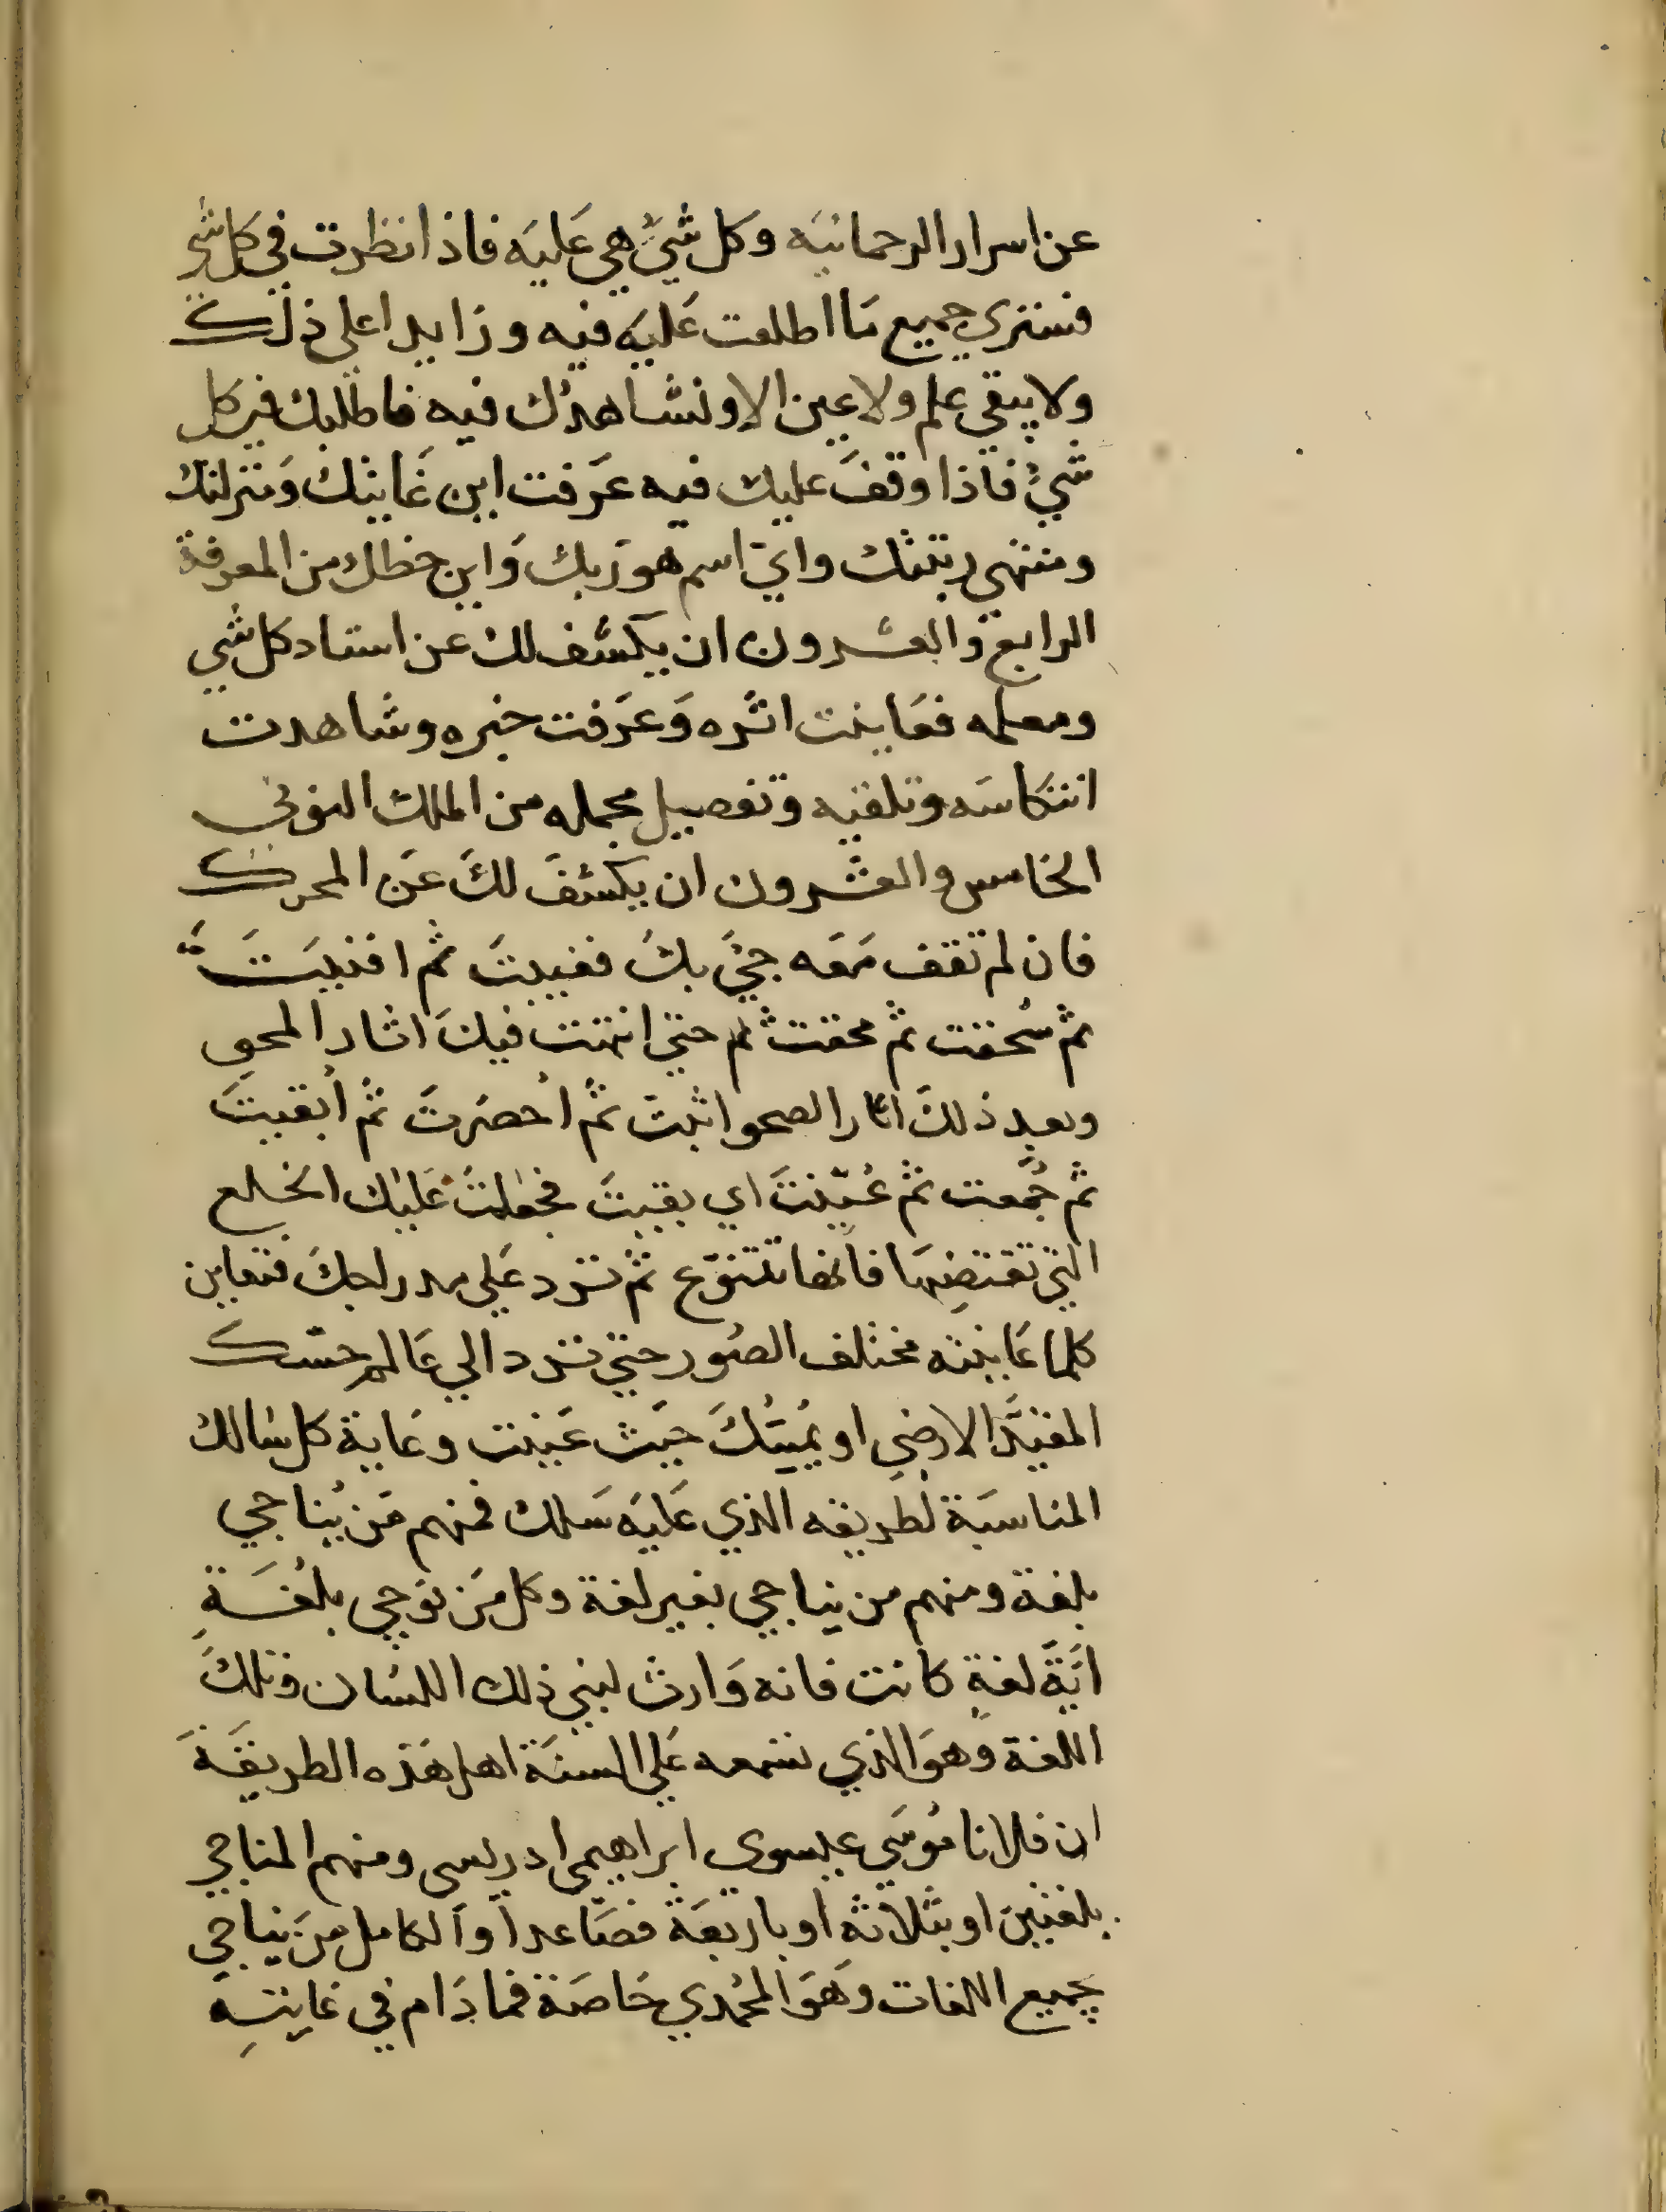 عن اسرار الرحمانيه وكل شيء هي عليه فاذا نظرت في كل شي
فستري جميع ما اطلعت عليه فيه وزايدا علي ذلك
ولا يبقي علم ولا عين الا ونشاهدك فيه فاطلبك في كل
شيء فاذا وقف عليك فيه عرفت اين غايتك ومنزلتك
ومنتهي رتبتك واي اسم هو ربك واين حظك من المعرفة
الرابع والعشرون ان يكشف لك عن استاد كل شي
ومعلمه فعاينت اثره وعرفت خبره وشاهدت
انتكاسه وتلقيه وتفصيل مجمله من الملك النوني
الخامس والعشرون ان يكشف لك عن المحرك
فان لم تقف معه جيء بك فغيبت ثم افنيت
ثم سحقت ثم محقت ثم حتي انتهت فيك اثار المحو
وبعد ذلك اثار الصحو اثبت ثم احضرت ثم ابقيت
ثم جمعت ثم عينت اي بقيت فجعلت عليك الخلع
التي تقتضيها فانها تتنوع ثم ترد علي مدراجك فتعاين
كلما عاينته مختلف الصور حتي ترد الي عالم حسك
المقيد الارضي او يميتك حيث عينت وغاية كل سالك
المناسبة لطريقه الذي عليه سلك فمنهم من يناجي
بلغة ومنهم من يناجي بغير لغة وكل من نوجي بلغة
اية لغة كانت فانه وارث لنبي ذلك اللسان وتلك
اللغة وهو الذي تسمعه علي السنة اهل هذه الطريقة
ان فلانا موسي عيسوي ابراهيمي ادريسي ومنهم المناجي
بلغتين او بثلاثة او باربعة فصاعدا والكامل من يناجي
بجميع اللغات وهو المحمدي خاصة فما دام في غايته